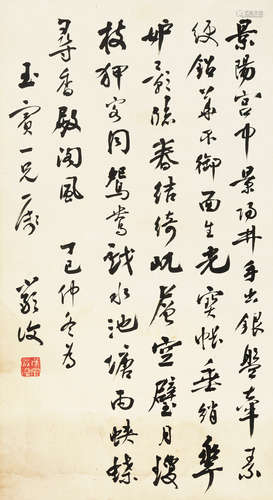 景陽宮中景陽井手出銀盤牽素
綆鉛華不御面生光寶帳垂綃翠
妒影臨春結綺屹層空璧月瓊
枝狎客同鴛鴦戲水池塘雨蛺蝶
尋香殿閣風 丁巳仲冬為
玉賓一兄屬
嚴復